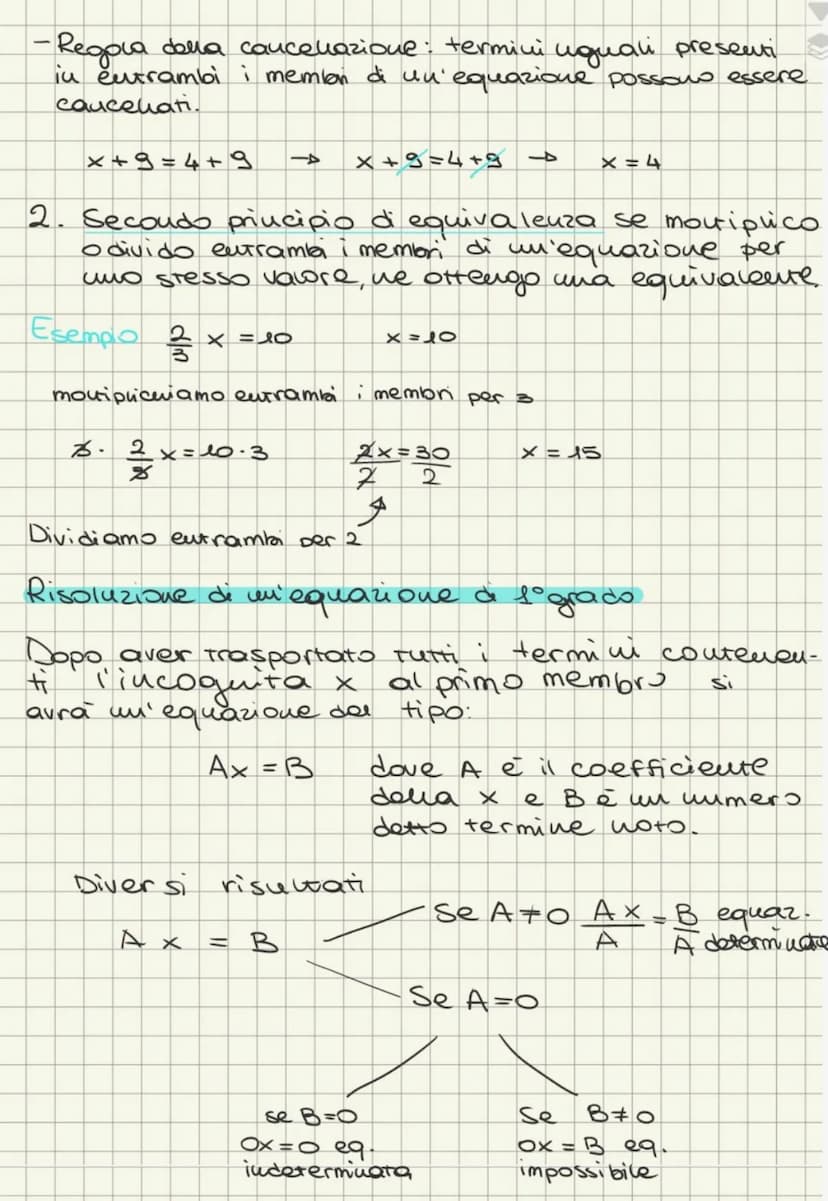 - Regola della cancellazione: termini uguali presenti
in entrambi i membri di un'equazione possono essere
cancellati.
x + 9 = 4 + 9 → x + 9 = 4 + 9 → x = 4
2. Secondo principio di equivalenza se moltiplico
o divido entrambi i membri di un'equazione per
uno stesso valore, ne ottengo una equivalente.
Esempio 2/3 x = 10 x = 10
moltiplichiamo entrambi i membri per 3
3 · 2/3 x = 10 · 3 2x/2 = 30/2 x = 15
Dividiamo entrambi per 2
Risoluzione di un'equazione di 1° grado
Dopo aver trasportato tutti i termini contenen-
ti l'incognita x al primo membro si
avrà un'equazione del tipo:
Ax = B dove A è il coefficiente
della x e B è un numero
detto termine noto.
Diversi risultati
Se A ≠ 0 Ax/A = B/A equaz.
determinata
Ax = B
Se A = 0
se B = 0
0x = 0 eq.
indeterminata
Se B ≠ 0
0x = B eq.
impossibile